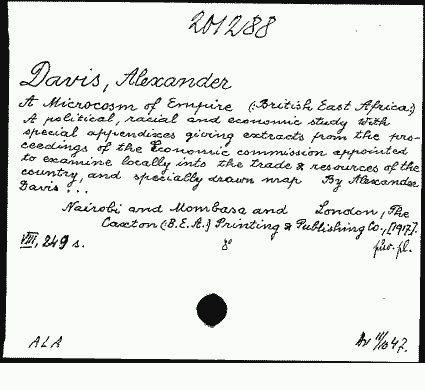 201288
Davis, Alexander
A Microcosm of Empire (:British East Africa:)
A political, racial and economic study with
special appendixes giving extracts from the pro-
ceedings of the Economic commission appointed
to examine locally into the trade & resources of the
country, and specially drawn map By Alexander
Davis ...
Nairobi and Mombasa and London, The
Caxton (:B.E.A.:) Printing & Publishing Co., [1917].
VIII, 249 s. 8°
ALA 47.